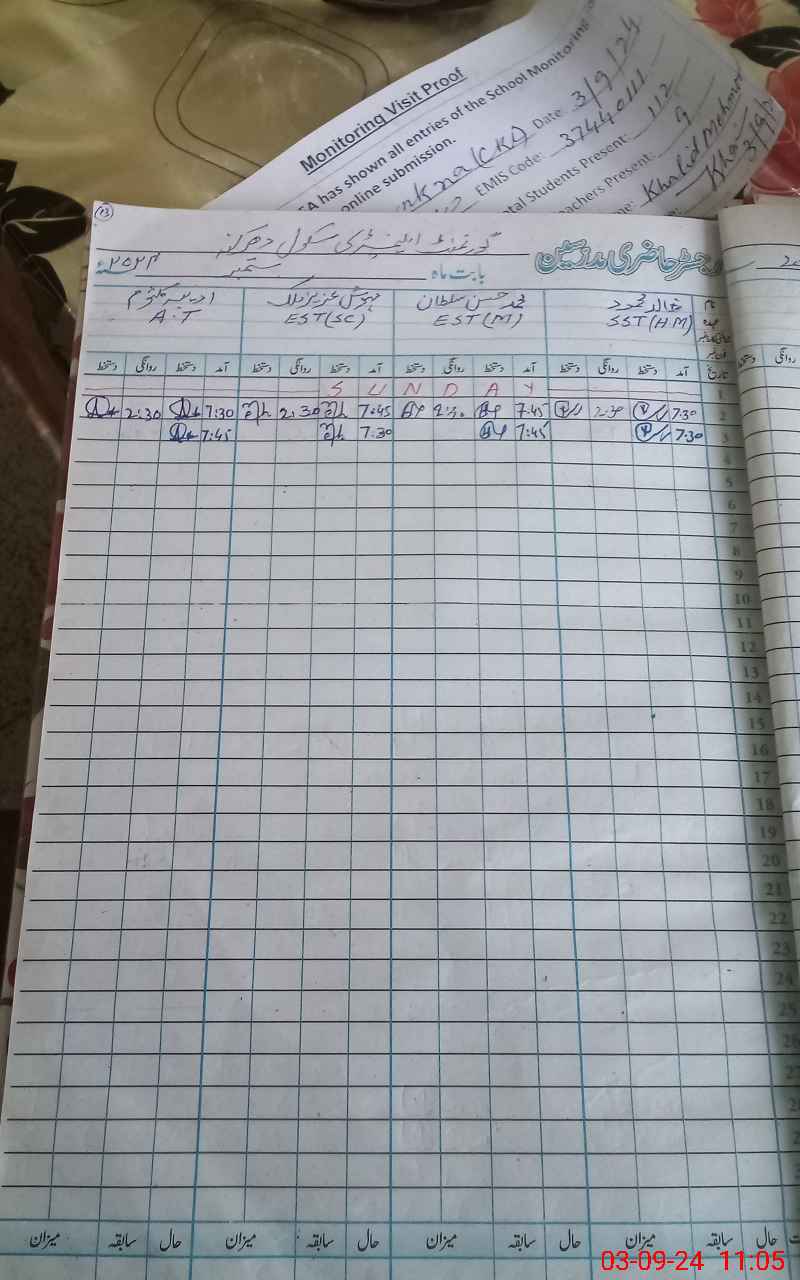 Monitoring Visit Proof
A has shown all entries of the School Monitoring
online submission.
Date: 3/9/24
EMIS Code: 37440111
tal Students Present: 112
eachers Present: 9
Khalid Mehmo
3/9/
13
گورنمنٹ ایلیمنٹری سکول دھرکنہ
رجسٹر حاضری مدرسین
بابت ماہ ستمبر ۲۰۲۴
نام خالد محمود محمد حسن سلطان مہوش عزیز ملک
عہدہ SST (H.M) EST (M) EST (SC) A.T
تاریخ آمد دستخط روانگی دستخط آمد دستخط روانگی دستخط آمد دستخط روانگی دستخط آمد دستخط روانگی دستخط
1 SUNDAY
2 7:30 2:30 7:45 2:30 7:45 2:30 7:30 2:30
3 7:30 7:45 7:30 7:45
4
5
6
7
8
9
10
11
12
13
14
15
16
17
18
19
20
21
22
23
24
25
حال سابقہ میزان حال سابقہ میزان حال سابقہ میزان حال سابقہ میزان
03-09-24 11:05